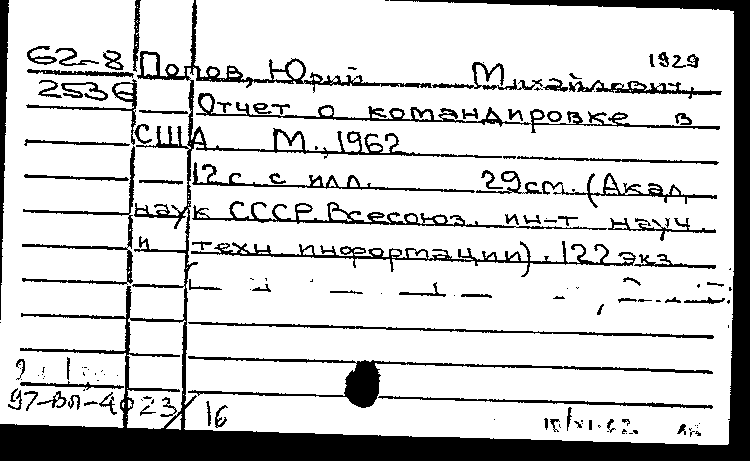 62-8 Попов, Юрий Михайлович, 1929
2536 Отчет о командировке в
США. М., 1962
12 с. с илл. 29 см. (Акад.
наук СССР. Всесоюз. ин-т науч.
и техн информации). 122 экз.
97-ВП-4023/16